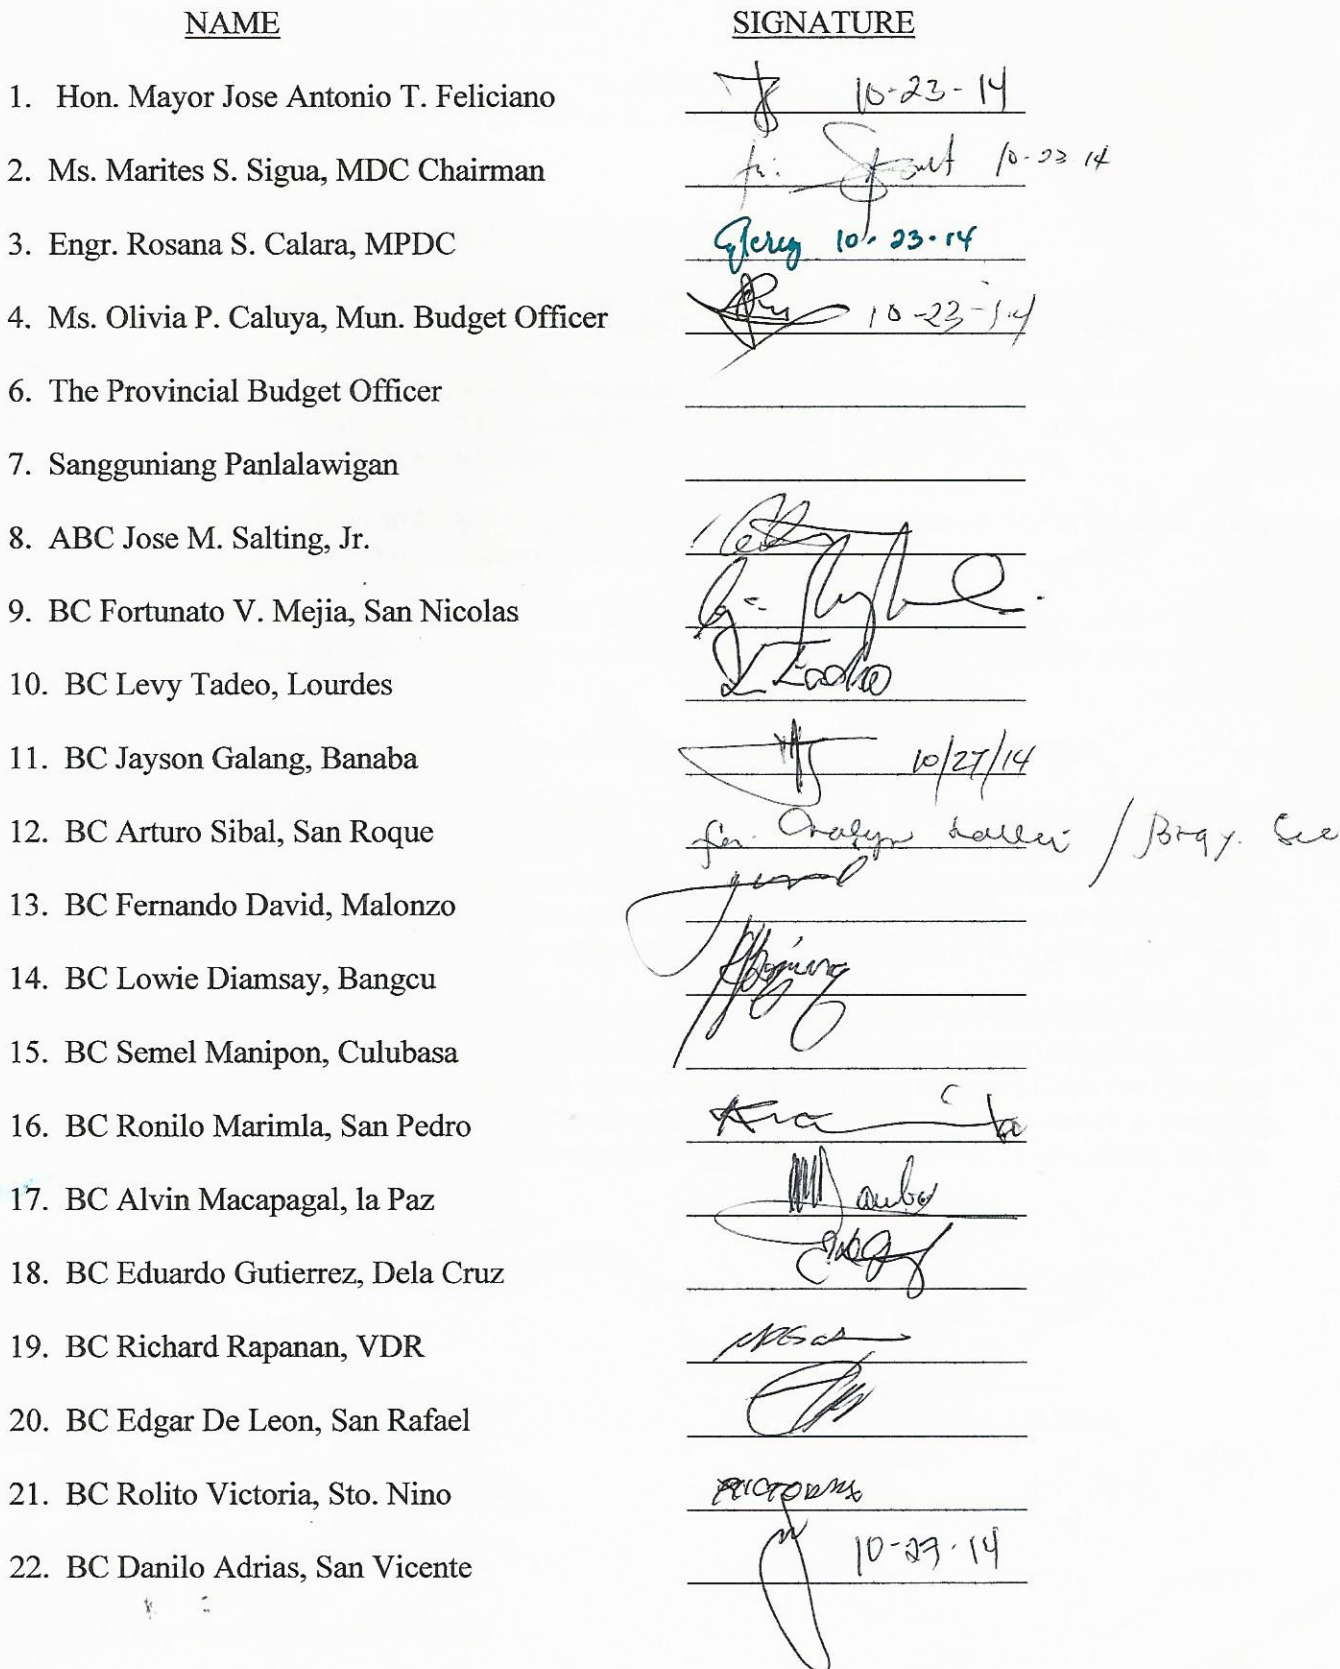 NAME SIGNATURE
1. Hon. Mayor Jose Antonio T. Feliciano 10-23-14
2. Ms. Marites S. Sigua, MDC Chairman 10-23 14
3. Engr. Rosana S. Calara, MPDC 10-23-14
4. Ms. Olivia P. Caluya, Mun. Budget Officer 10-23-14
6. The Provincial Budget Officer
7. Sangguniang Panlalawigan
8. ABC Jose M. Salting, Jr.
9. BC Fortunato V. Mejia, San Nicolas
10. BC Levy Tadeo, Lourdes
11. BC Jayson Galang, Banaba 10/27/14
12. BC Arturo Sibal, San Roque / Brgy. Sec
13. BC Fernando David, Malonzo
14. BC Lowie Diamsay, Bangcu
15. BC Semel Manipon, Culubasa
16. BC Ronilo Marimla, San Pedro
17. BC Alvin Macapagal, la Paz
18. BC Eduardo Gutierrez, Dela Cruz
19. BC Richard Rapanan, VDR
20. BC Edgar De Leon, San Rafael
21. BC Rolito Victoria, Sto. Nino
22. BC Danilo Adrias, San Vicente